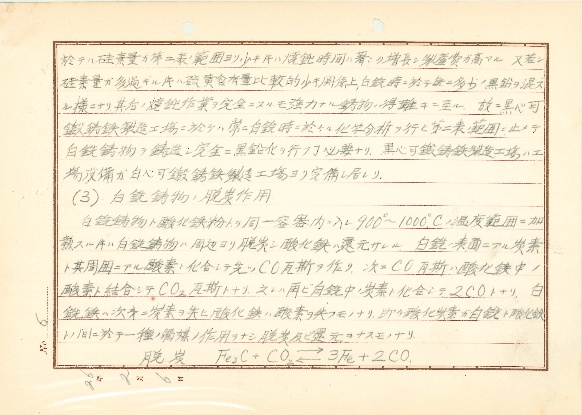 於テハ硅素量カ第二表ノ範囲ヨリ少キキハ煆鈍時間ハ著シク増長シ生産費カ高マル 又若シ
硅素量カ多過キルキハ硫黄含有量比較的少キ関係上白銑時ニ於テ既ニ多少ノ黒鉛ヲ混スル
様ニナリ其后ノ煆鈍作業ヲ完全ニスルモ強力ナル鋳物ハ得難キニ至ル 故ニ黒心可
鍛鋳鉄製造工場ニ於テハ常ニ白銑時ニ於ケル化学分析ヲ行ヒ第二表範囲ニ止メテ
白銑鋳物ヲ鋳造シ完全ニ黒鉛化ヲ行フ必要ナリ. 黒心可鍛鋳鉄製造工場ハ工
場設備カ白心可鍛鋳鉄製造工場ヨリ完備シ居レリ.
(3) 白銑鋳物ノ脱炭作用
白銑鋳物ト酸化鉄粉トヲ同一容器内ニ入レ900°〜1000°Cノ温度範囲ニ加
熱スルキハ白銑鋳物ハ周辺ヨリ脱炭シ酸化鉄ハ還元サレル 白銑ノ表面ニアル炭素
ト其周囲ニアル酸素ト化合シテ先ツCO瓦斯ヲ作リ. 次ニCO瓦斯ハ酸化鉄中ノ
酸素ト結合シテCO₂瓦斯トナリ. 之レハ再ビ白銑中ノ炭素ト化合シテ2COトナリ. 白
銑鉄ハ次第ニ炭素ヲ失ヒ酸化鉄ハ酸素ヲ失フモノナリ. 酸化炭素カ白銑ト酸化鉄
トノ間ニ於テ一種ノ媒ノ作用ヲナシ脱炭及ビ還元ヲナスモノナリ.
脱炭 Fe₃C + CO₂ ⇄ 3Fe + 2CO.
No. 6
26年 2月 6日